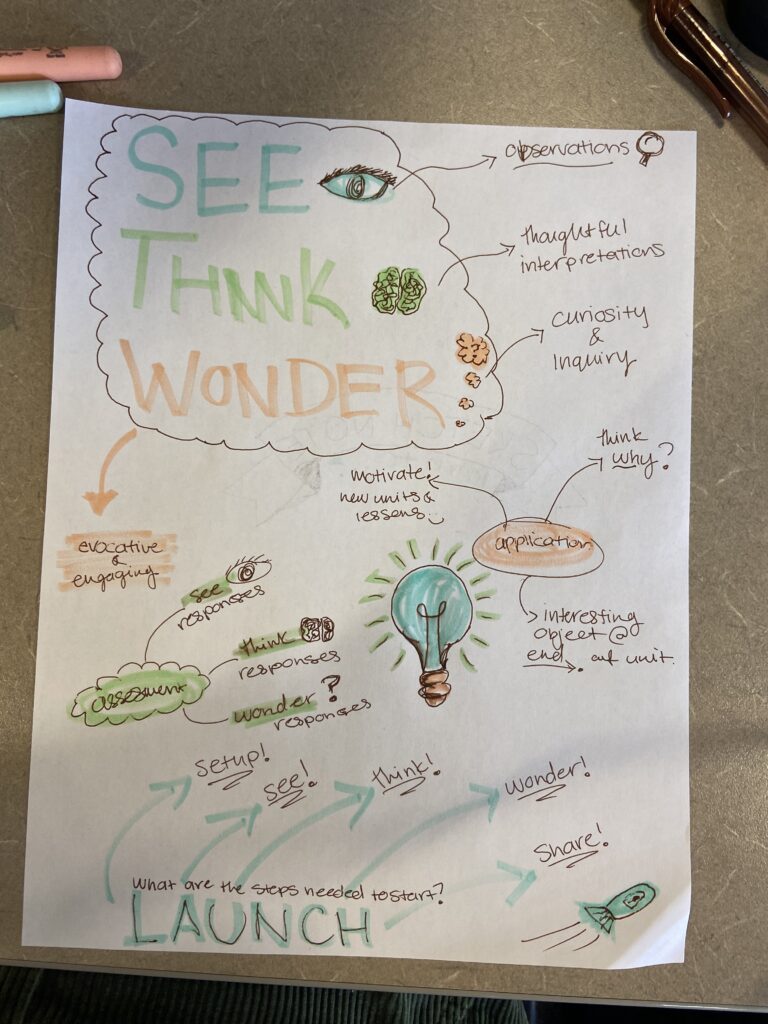 SEE
THINK
WONDER
observations
thoughtful
interpretations
curiosity
&
Inquiry
think
why?
motivate!
new units &
lessons
application
interesting
object @
end. of unit.
evocative
&
engaging
see
responses
think
responses
wonder ?
responses
assesment
setup!
see!
think!
wonder!
share!
what are the steps needed to start?
LAUNCH